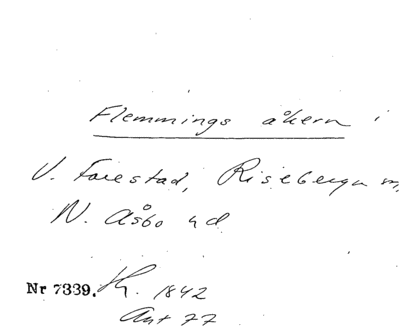 Flemmings åkern i
V. Forestad, Riseberga sn,
N. Åsbo hd
Nr 7339. Kr. 1842
Ant 77